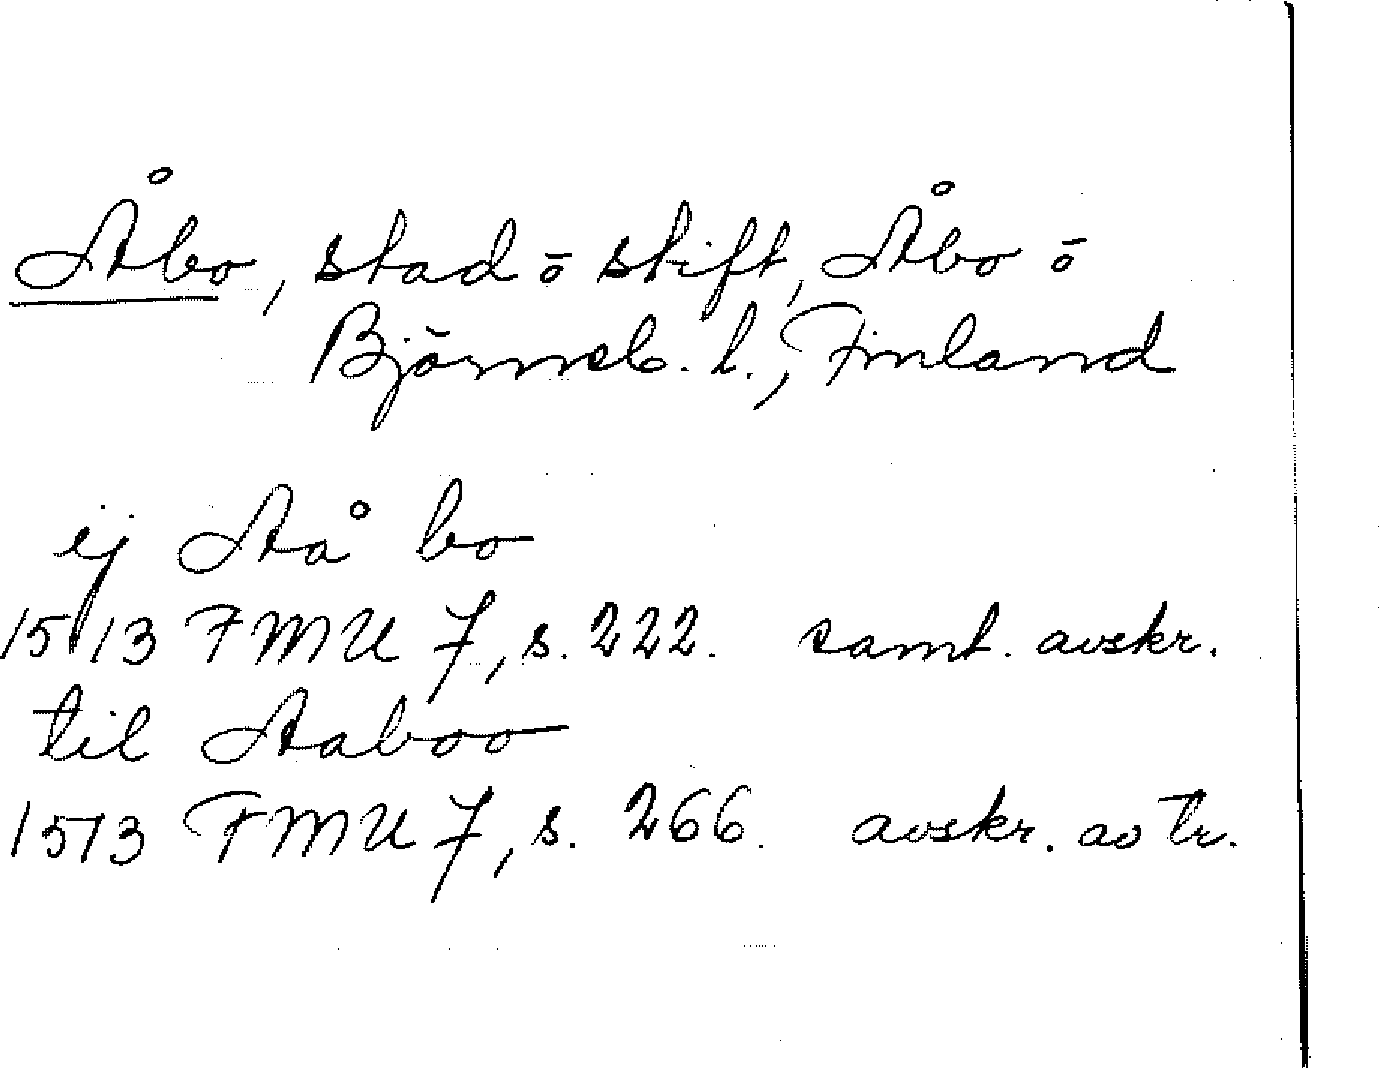 Åbo, stad ō stift, Åbo ō
Björneb. l., Finland
ej Aå bo
1513 FMU 7, s. 222. samt. avskr.
til Aaboo
1513 FMU 7, s. 266. avskr. av tr.